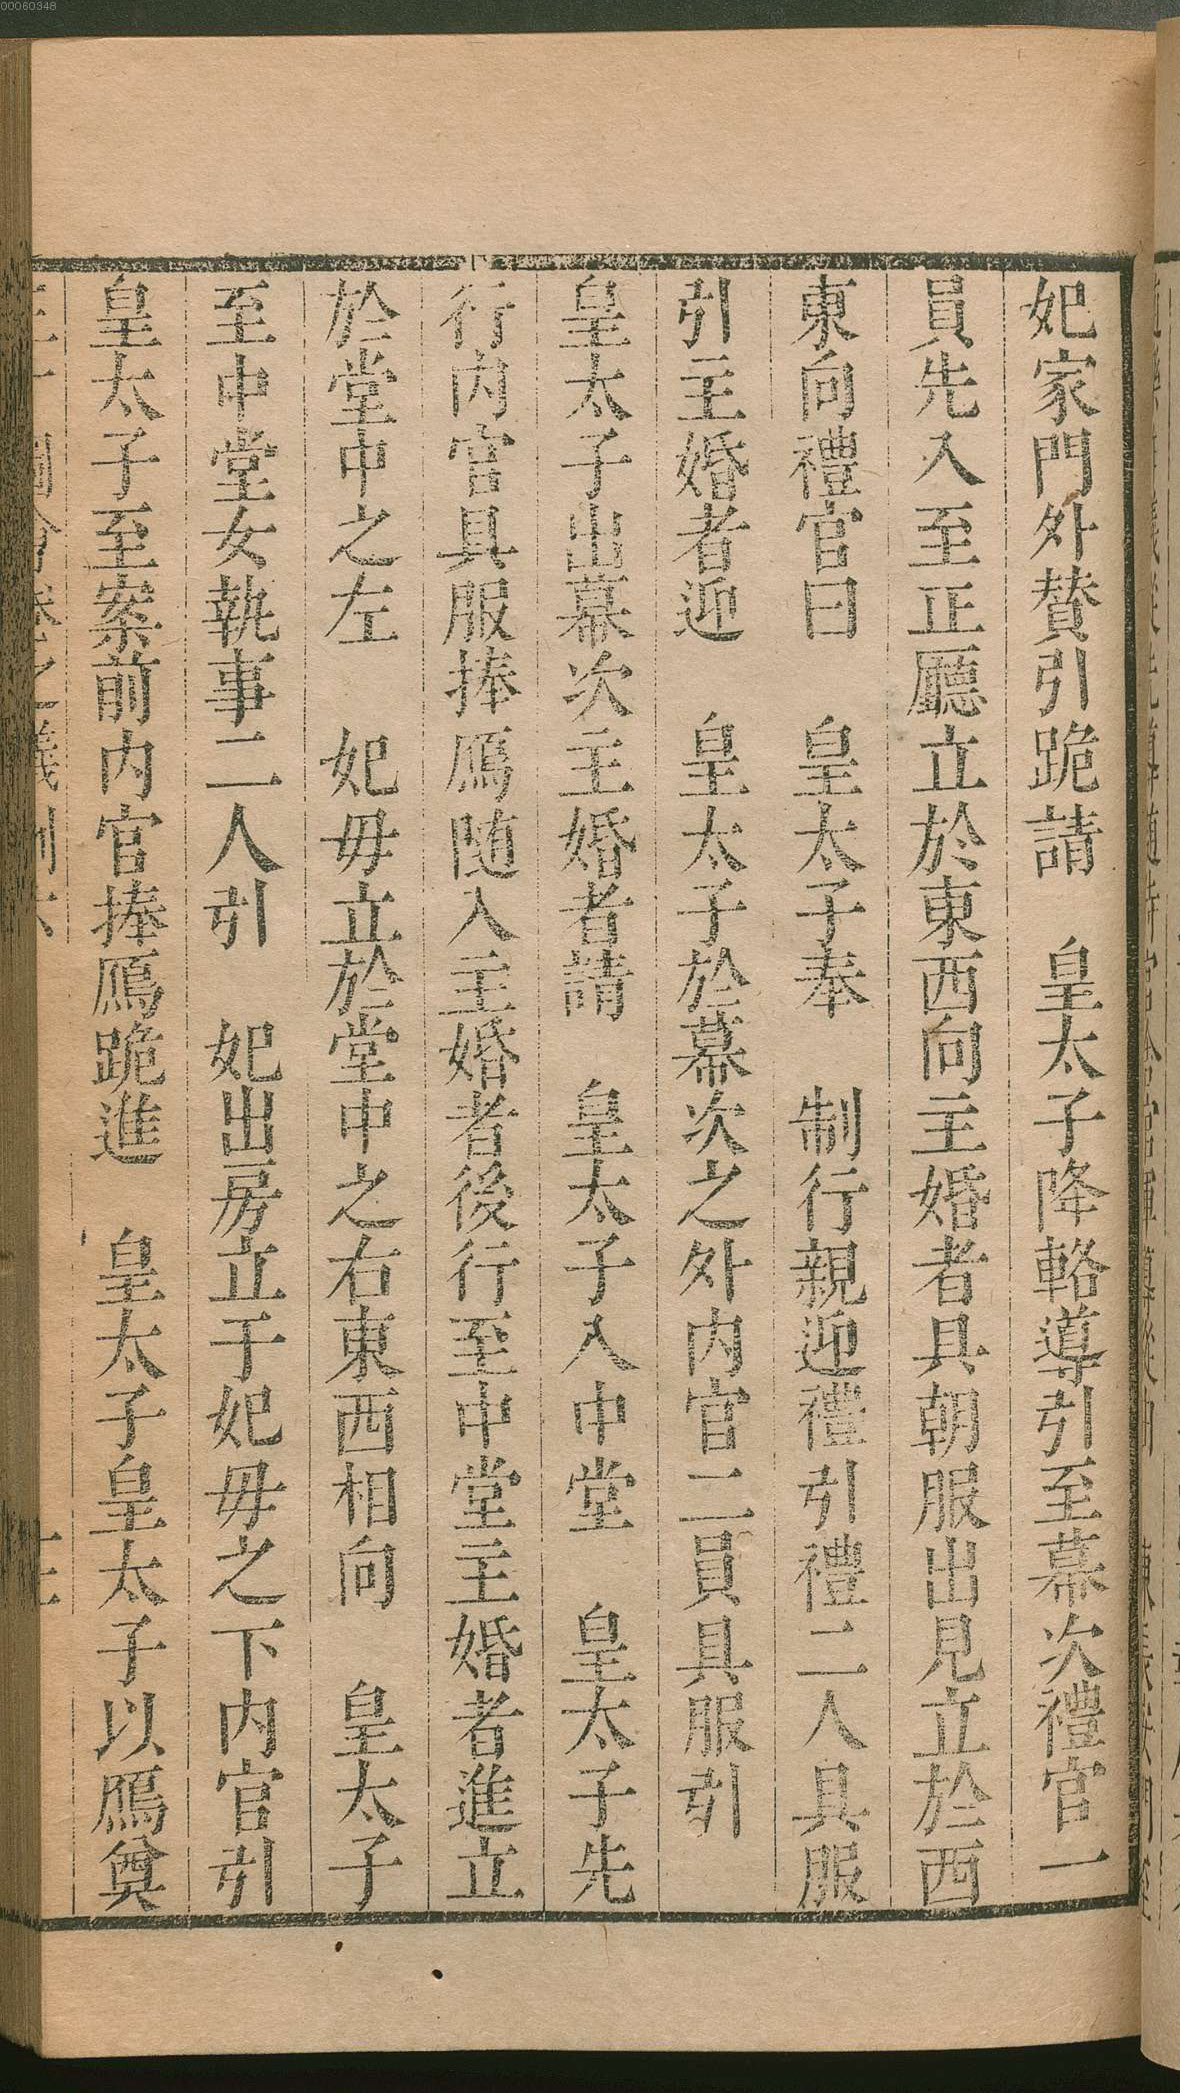 00060348
妃家門外贊引跪請　皇太子降輅導引至幕次禮官一
員先入至正廳立於東西向主婚者具朝服出見立於西
東向禮官曰　皇太子奉　制行親迎禮引禮二人具服
引主婚者迎　皇太子於幕次之外内官二員具服引
皇太子出幕次主婚者請　皇太子入中堂　皇太子先
行内官具服捧鴈随入主婚者後行至中堂主婚者進立
於堂中之左　妃毋立於堂中之右東西相向　皇太子
至中堂女執事二人引　妃出房立于妃毋之下内官引
皇太子至案前内官捧鴈跪進　皇太子皇太子以鴈奠